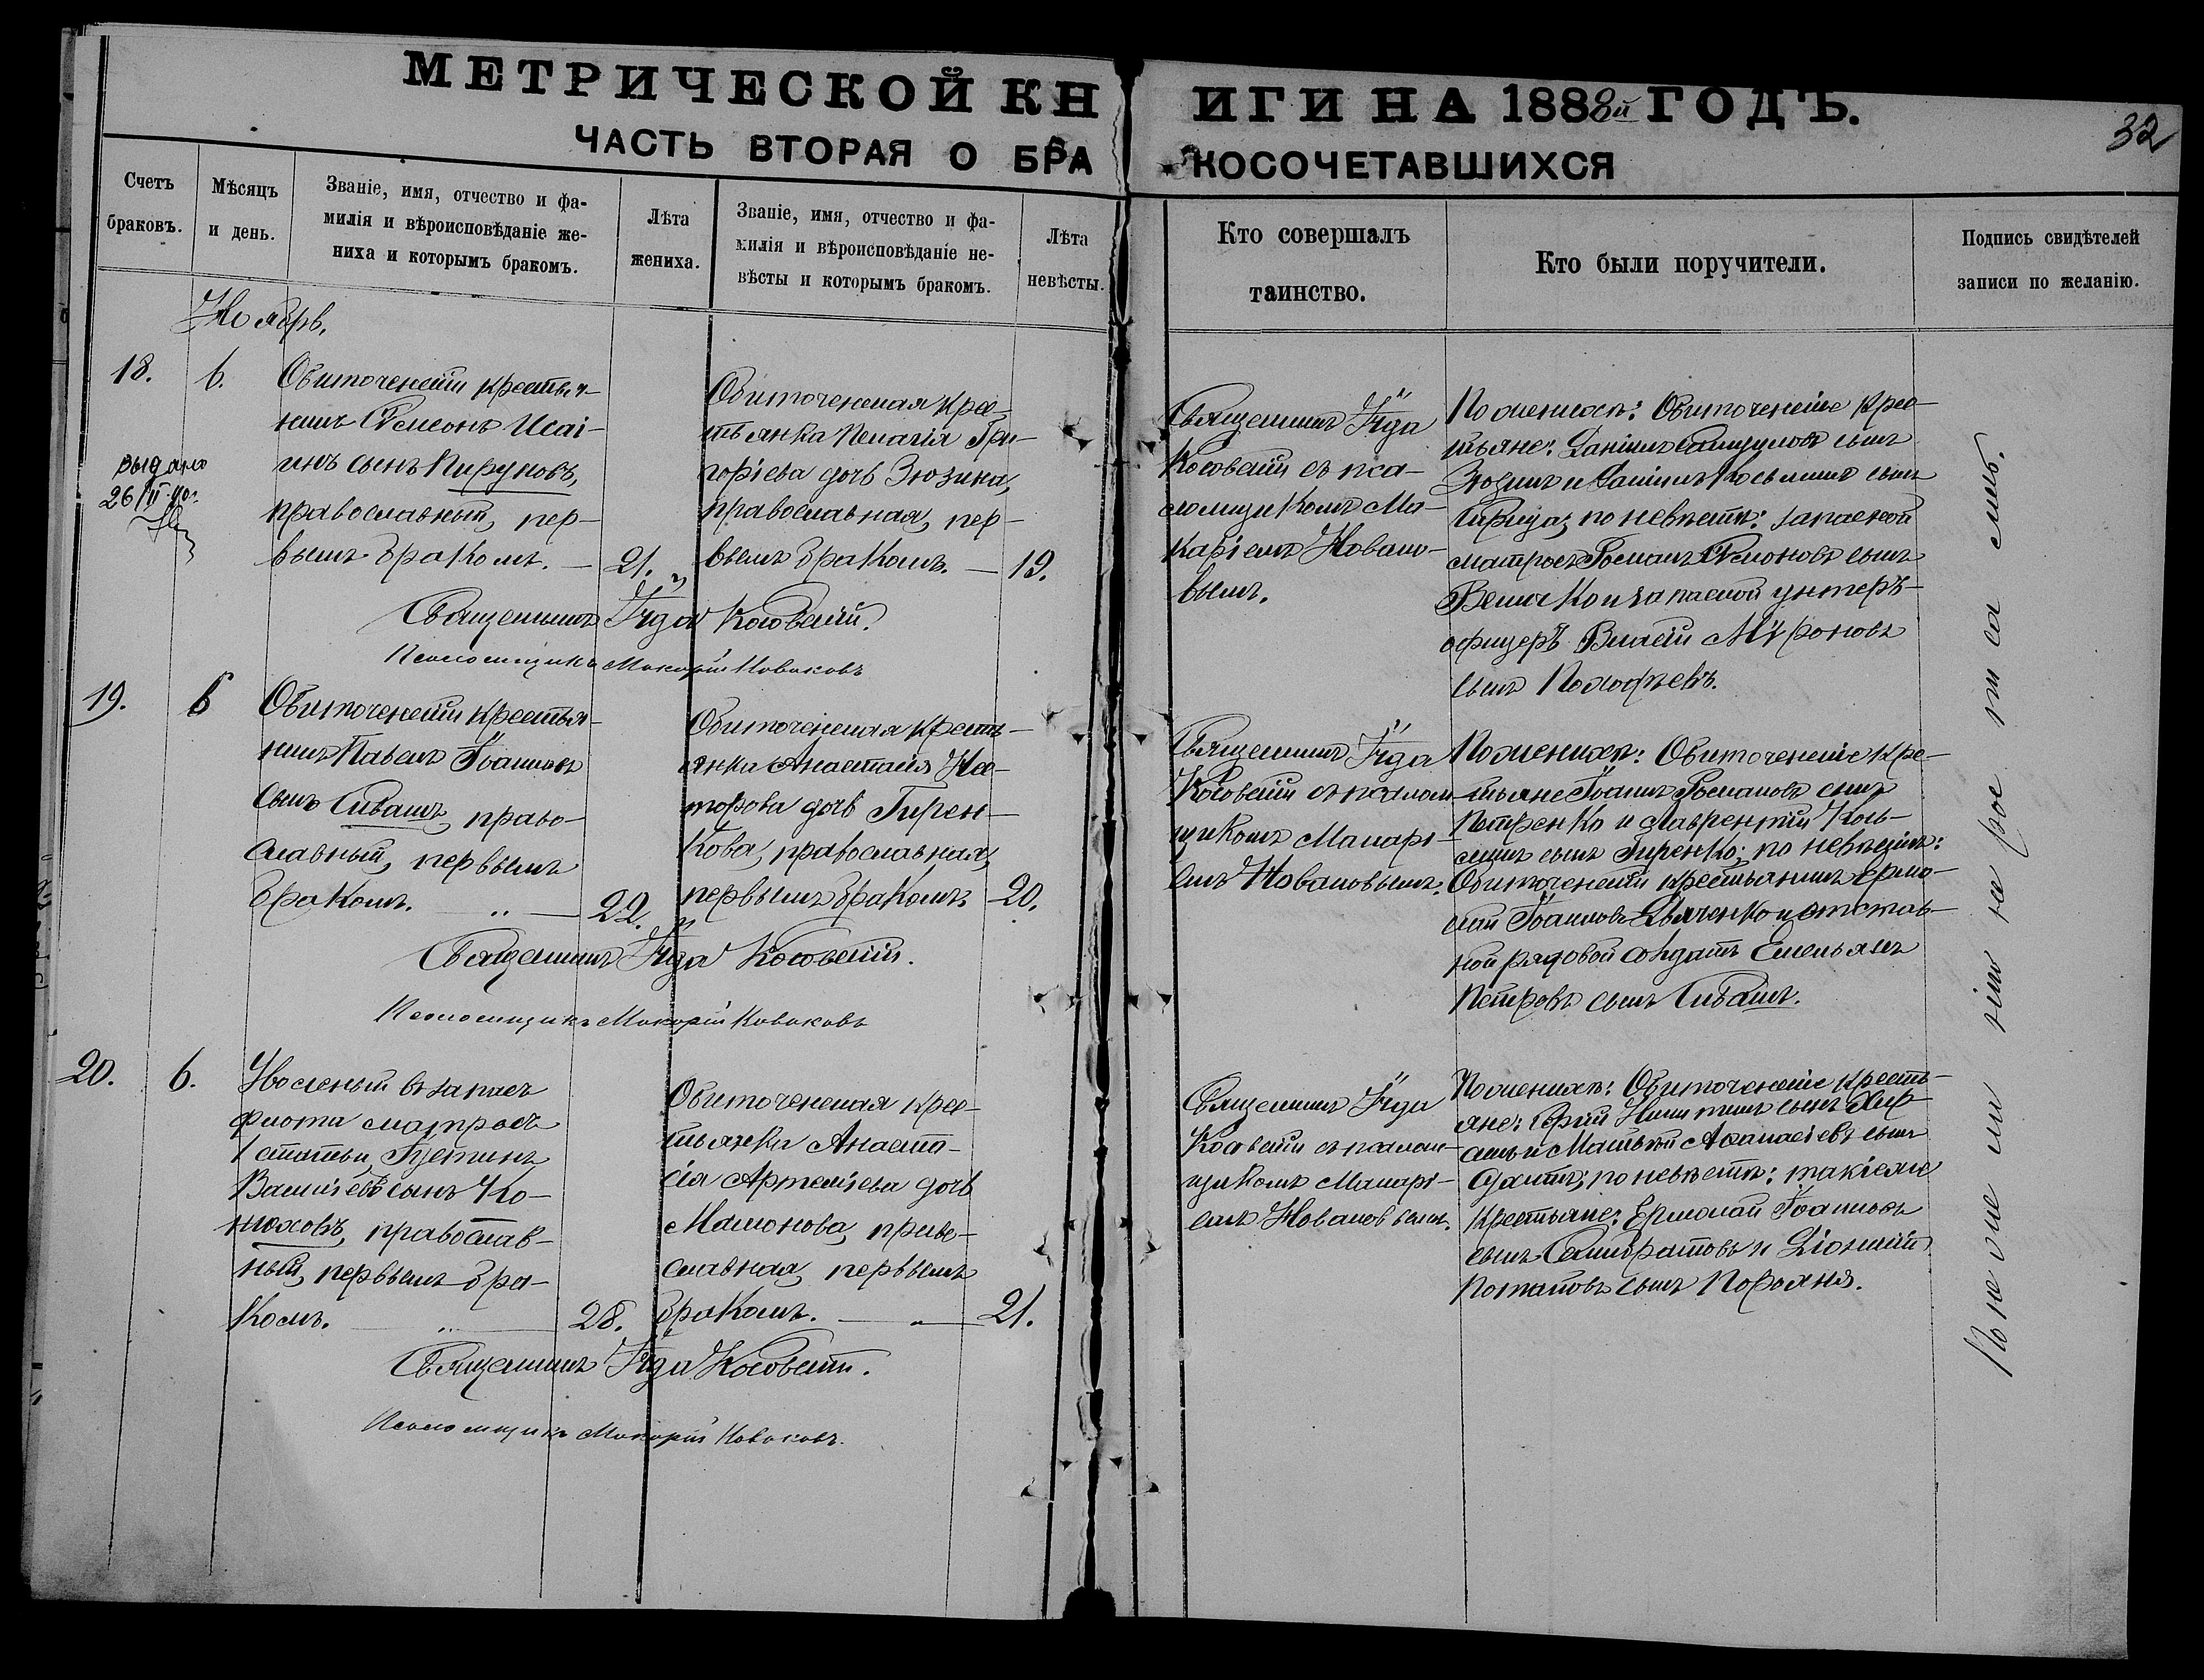 МЕТРИЧЕСКОЙ КНИГИ НА 1888й ГОДЪ.
32
ЧАСТЬ ВТОРАЯ О БРАКОСОЧЕТАВШИХСЯ
Счетъ
браковъ.
Мѣсяцъ
и день.
Званіе, имя, отчество и фа-
милія и вѣроисповѣданіе же-
ниха и которымъ бракомъ.
Лѣта
жениха.
Званіе, имя, отчество и фа-
милія и вѣроисповѣданіе не-
вѣсты и которымъ бракомъ.
Лѣта
невѣсты.
Кто совершалъ
таинство.
Кто были поручители.
Подпись свидѣтелей
записи по желанію.
Ноябрь.
18.
6.
выдано
26/II
Обиточенскій крестья-
нинъ Симеонъ Исаі-
инъ сынъ Пируновъ,
православный, пер-
вымъ бракомъ. —
21.
Обиточенская кре-
стьянка Пелагія Гри-
горіева дочь Зюзина,
православная, пер-
вымъ бракомъ. —
19.
Священникъ Іуда
Косовскій съ пса-
ломщикомъ Ма-
каріемъ Новако-
вымъ.
По женихѣ: Обиточенскіе кре-
стьяне: Даніилъ сынъ
Зюзинъ и Даніилъ Косьминъ сынъ
по невѣстѣ: запасной
матросъ Романъ Симоновъ сынъ
и запасной унтеръ-
офицеръ Мѵроновъ
сынъ
Священникъ Іуда Косовскій.
Псаломщикъ Макарій Новаковъ
19.
6
Обиточенскій крестья-
нинъ Павелъ Іоанновъ
сынъ Сивашъ, право-
славный, первымъ
бракомъ. — " —
22.
Обиточенская кресть-
янка Анастасія Не-
сторова дочь Гирен-
кова, православная,
первымъ бракомъ.
20.
Священникъ Іуда
Косовскій съ псалом-
щикомъ Макарі-
емъ Новаковымъ.
По женихѣ: Обиточенскіе кре-
стьяне Іоаннъ Романовъ сынъ
Петренко и Лаврентій Кось-
минъ сынъ Гиренко; по невѣстѣ:
Обиточенскій крестьянинъ Ермо-
лай Іоанновъ Дяченко и отстав-
ной рядовой солдатъ Емельянъ
Петровъ сынъ Сивашъ.
Священникъ Іуда Косовскій.
Псаломщикъ Макарій Новаковъ
20.
6.
Уволеный въ запасъ
флота матросъ
1 статьи Густинъ
Василіевъ сынъ Ко-
нюховъ, православ-
ный, первымъ бра-
комъ. — " —
28.
Обиточенская кре-
стьянка Анаста-
сія Артеміева дочь
Мамонова, право-
славная, первымъ
бракомъ. — " —
21.
Священникъ Іуда
Косовскій съ псалом-
щикомъ Макарі-
емъ Новаковымъ.
По женихѣ: Обиточенскіе кресть-
яне: сынъ
и Матѳей Аѳанасіевъ сынъ
по невѣстѣ: такіеже
крестьяне: Ермолай Іоанновъ
сынъ и Діонисій
Потаповъ сынъ
Священникъ Іуда Косовскій.
Псаломщикъ Макарій Новаковъ.